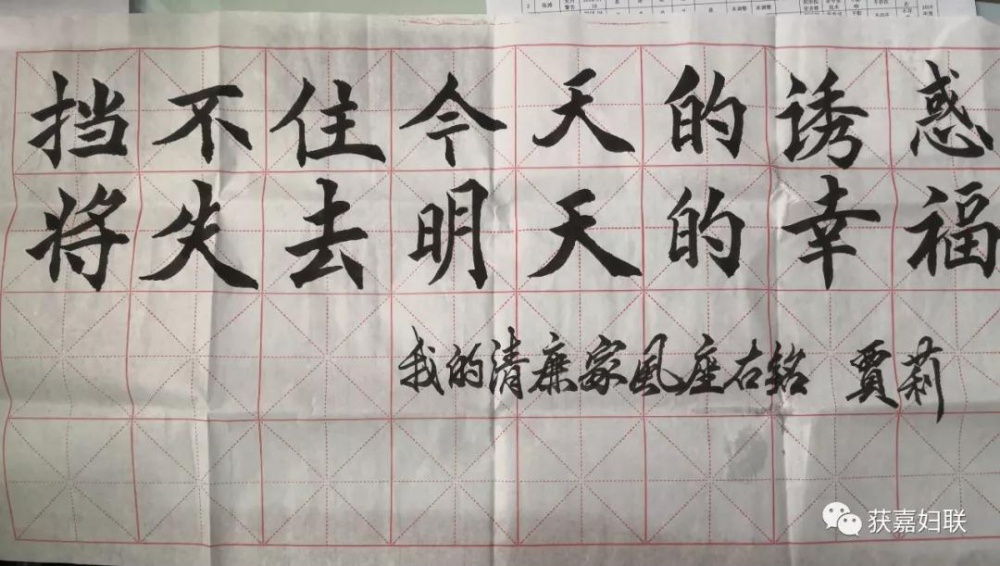 挡不住今天的诱惑
将失去明天的幸福
我的清廉家风座右铭 贾莉
获嘉妇联